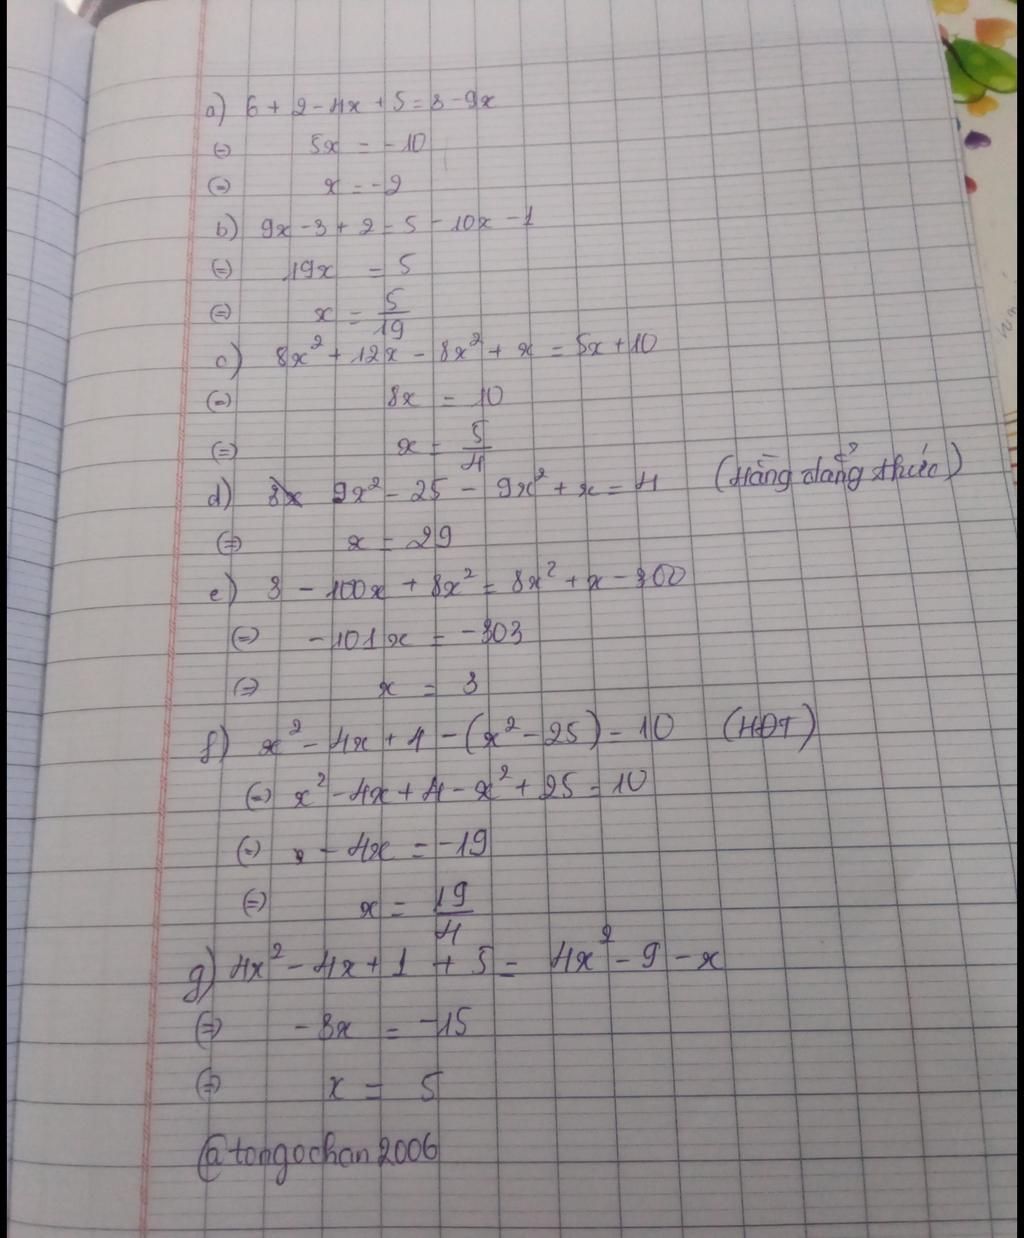 a) 6 + 2 - 4x + 5 = 3 - 9x
(=) 5x = -10
(=) x = -2
b) 9x - 3 + 2 = 5 - 10x - 1
(=) 19x = 5
(=) x = 5/19
c) 8x² + 12x - 8x² + x = 5x + 10
(=) 8x = 10
(=) x = 5/4
d) 9x² - 25 - 9x² + x = 4 (Hằng đẳng thức)
(=) x = 29
e) 3 - 100x + 8x² = 8x² + x - 300
(=) -101x = -303
(=) x = 3
f) x² - 4x + 4 - (x² - 25) = 10 (HĐT)
(=) x² - 4x + 4 - x² + 25 = 10
(=) - 4x = -19
(=) x = 19/4
g) 4x² - 4x + 1 + 5 = 4x² - 9 - x
(=) -3x = -15
(=) x = 5
@tongochan2006